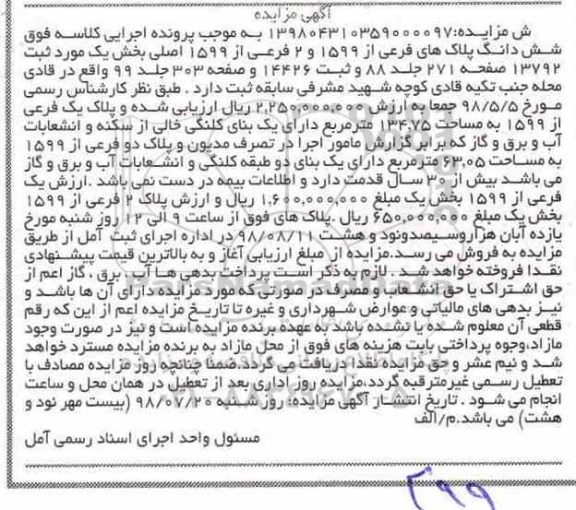 آگهی مزایده
ش مزایده:۱۳۹۸۰۴۳۱۰۳۵۹۰۰۰۰۹۷ به موجب پرونده اجرایی کلاسه فوق
شش دانگ پلاک های فرعی از ۱۵۹۹ و ۲ فرعی از ۱۵۹۹ اصلی بخش یک مورد ثبت
۱۳۷۹۲ صفحه ۲۷۱ جلد ۸۸ و ثبت ۱۴۴۲۶ و صفحه ۳۰۳ جلد ۹۹ واقع در قادی
محله جنب تکیه قادی کوچه شهید مشرفی سابقه ثبت دارد . طبق نظر کارشناس رسمی
مورخ ۹۸/۵/۵ جمعا به ارزش ۲,۲۵۰,۰۰۰,۰۰۰ ریال ارزیابی شده و پلاک یک فرعی
از ۱۵۹۹ به مساحت ۱۳۳,۷۵ مترمربع دارای یک بنای کلنگی خالی از سکنه و انشعابات
آب و برق و گاز که برابر گزارش مامور اجرا در تصرف مدیون و پلاک دو فرعی از ۱۵۹۹
به مساحت ۶۳,۰۵ مترمربع دارای یک بنای دو طبقه کلنگی و انشعابات آب و برق و گاز
می باشد بیش از ۳۰ سال قدمت دارد و اطلاعات بیمه در دست نمی باشد .ارزش یک
فرعی از ۱۵۹۹ بخش یک مبلغ ۱,۶۰۰,۰۰۰,۰۰۰ ریال و ارزش پلاک ۲ فرعی از ۱۵۹۹
بخش یک مبلغ ۶۵۰,۰۰۰,۰۰۰ ریال .پلاک های فوق از ساعت ۹ الی ۱۲ روز شنبه مورخ
یازده آبان هزاروسیصدونود و هشت ۹۸/۰۸/۱۱ در اداره اجرای ثبت آمل از طریق
مزایده به فروش می رسد.مزایده از مبلغ ارزیابی آغاز و به بالاترین قیمت پیشنهادی
نقدا فروخته خواهد شد . لازم به ذکر است پرداخت بدهی ها آب، برق ، گاز اعم از
حق اشتراک یا حق انشعاب و مصرف در صورتی که مورد مزایده دارای آن ها باشد و
نیز بدهی های مالیاتی و عوارض شهرداری و غیره تا تاریخ مزایده اعم از این که رقم
قطعی آن معلوم شده یا نشده باشد به عهده برنده مزایده است و نیز در صورت وجود
مازاد،وجوه پرداختی بابت هزینه های فوق از محل مازاد به برنده مزایده مسترد خواهد
شد و نیم عشر و حق مزایده نقدا دریافت می گردد.ضمنا چنانچه روز مزایده مصادف با
تعطیل رسمی غیرمترقبه گردد،مزایده روز اداری بعد از تعطیل در همان محل و ساعت
انجام می شود . تاریخ انتشار آگهی مزایده: روز شنبه ۹۸/۰۷/۲۰ (بیست مهر نود و
هشت) می باشد.م/الف
مسئول واحد اجرای اسناد رسمی آمل